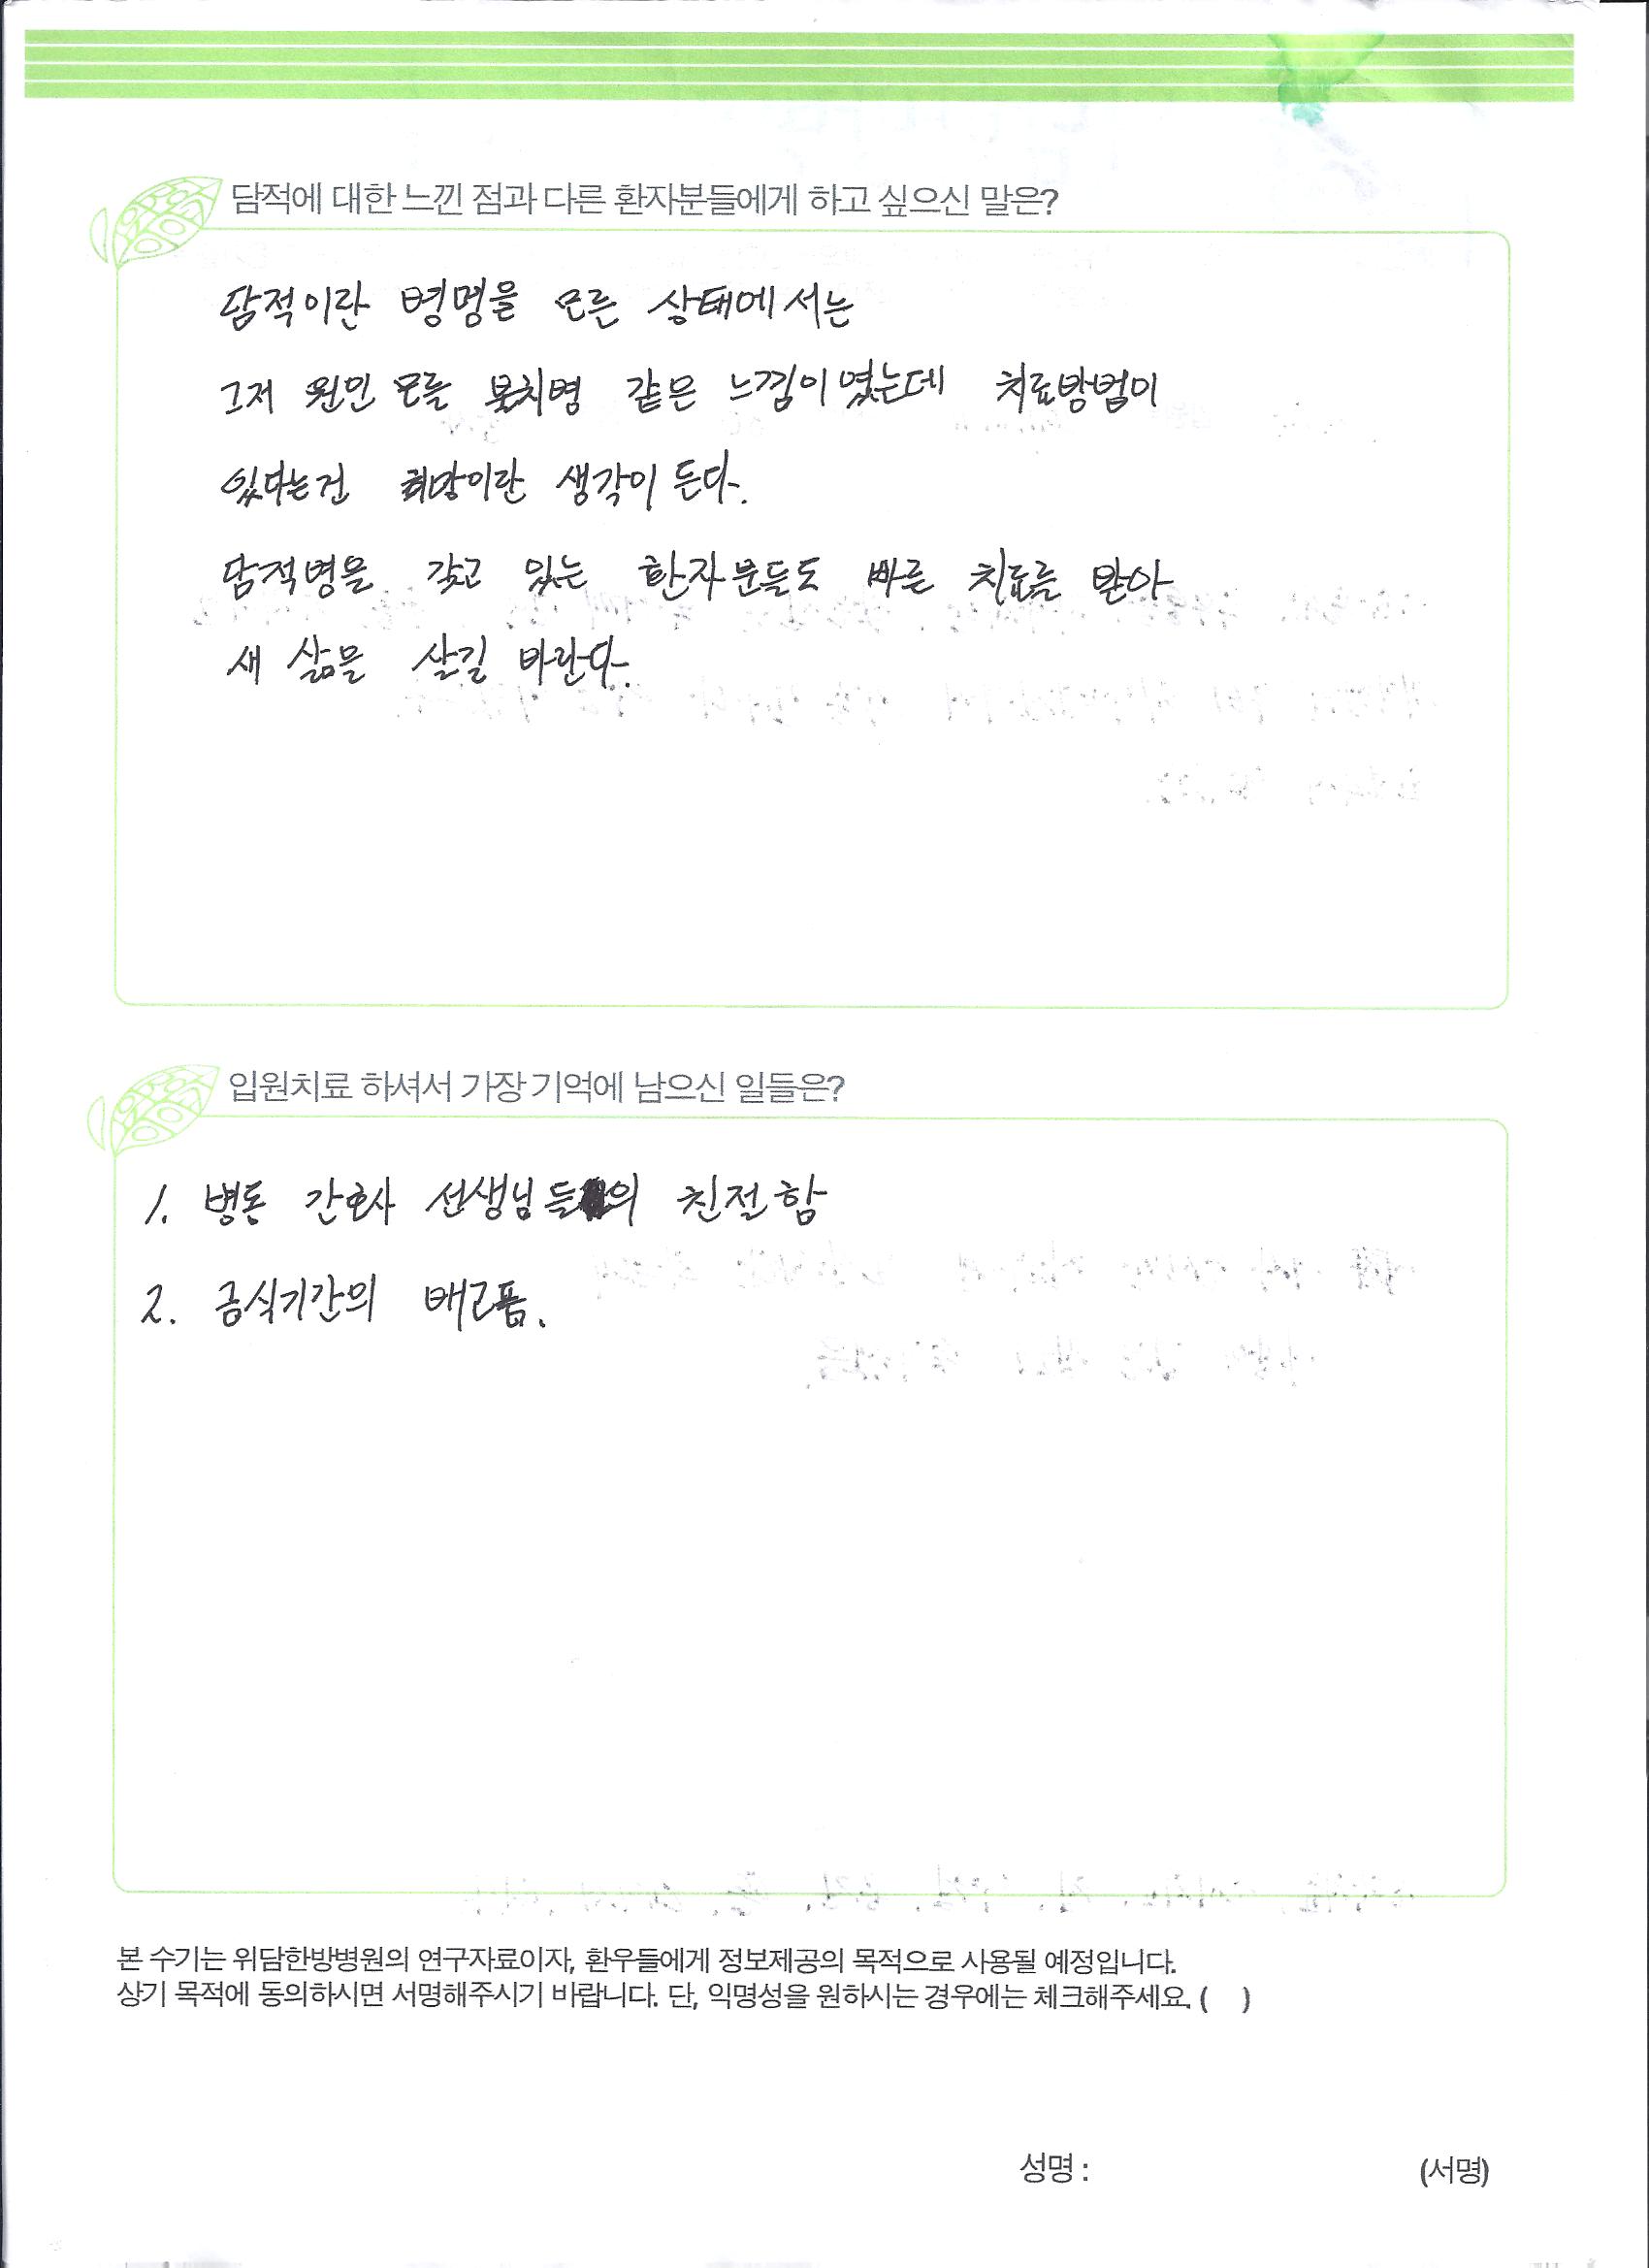 담적에 대한 느낀 점과 다른 환자분들에게 하고 싶으신 말은?
담적이란 병명을 모른 상태에서는
그저 원인 모를 불치병 같은 느낌이였는데 치료방법이
있다는건 희망이란 생각이 든다.
담적병을 갖고 있는 환자분들도 빠른 치료를 받아
새 삶을 살길 바란다.
입원치료 하셔서 가장 기억에 남으신 일들은?
1. 병동 간호사 선생님들의 친절함
2. 금식기간의 배고픔.
본 수기는 위담한방병원의 연구자료이자, 환우들에게 정보제공의 목적으로 사용될 예정입니다.
상기 목적에 동의하시면 서명해주시기 바랍니다. 단, 익명성을 원하시는 경우에는 체크해주세요. ( )
성명 : (서명)